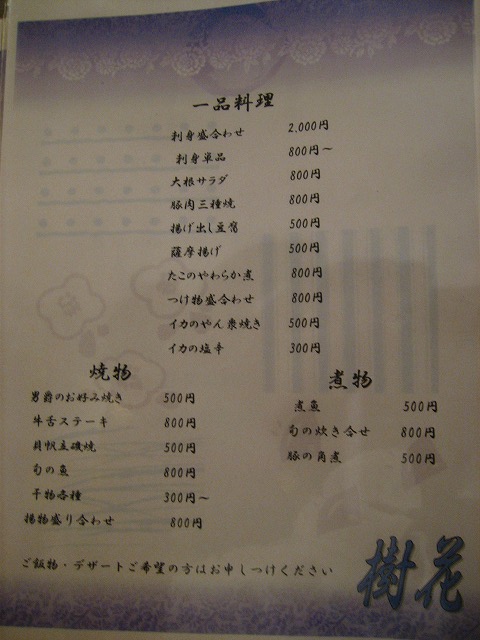 一品料理
刺身盛合わせ 2,000円
刺身単品 800円～
大根サラダ 800円
豚肉三種焼 800円
揚げ出し豆腐 500円
薩摩揚げ 500円
たこのやわらか煮 800円
つけ物盛合わせ 800円
イカのやん衆焼き 500円
イカの塩辛 300円
焼物
男爵のお好み焼き 500円
牛舌ステーキ 800円
貝帆立磯焼 500円
旬の魚 800円
干物各種 300円～
揚物盛り合わせ 800円
煮物
煮魚 500円
旬の炊き合せ 800円
豚の角煮 500円
ご飯物・デザートご希望の方はお申しつけください
樹花